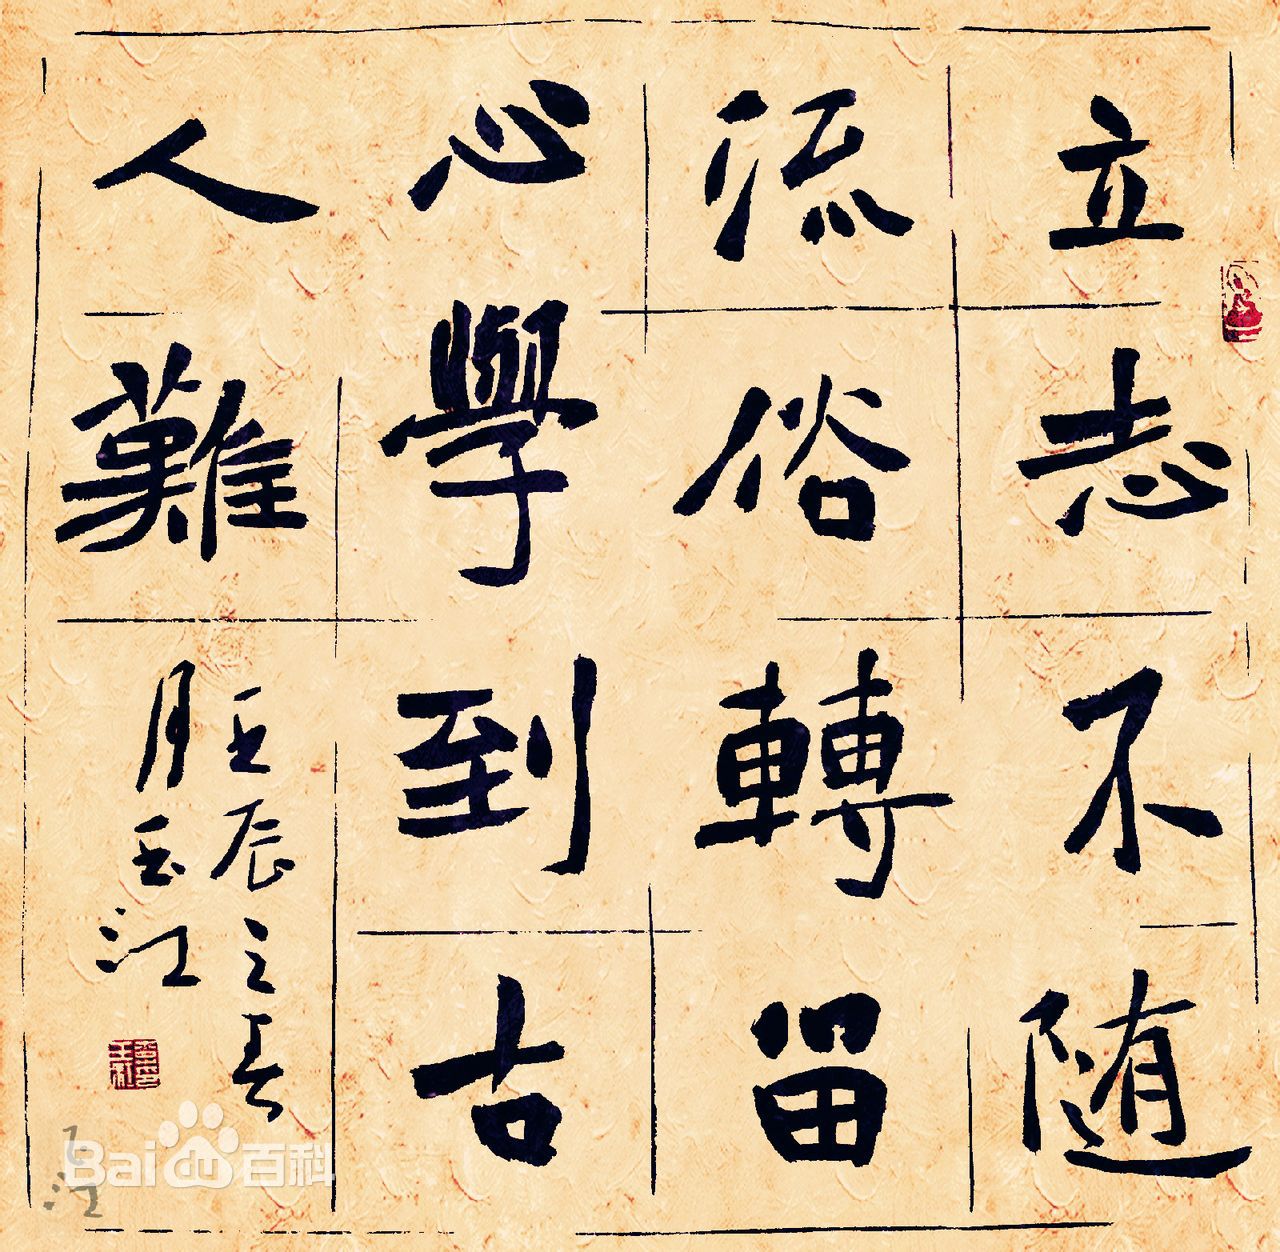 立志不随
流俗轉留
心學到古
人難
壬辰之春
月玉江
Bai百科